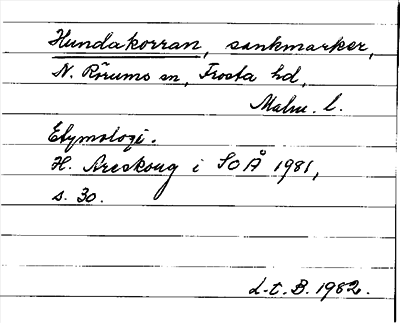 Hundakorran, sankmarker,
N. Rörums sn, Frosta hd,
Malm. l.
Etymologi.
H. Areskoug i SOÅ 1981,
s. 30.
L-t. B. 1982.